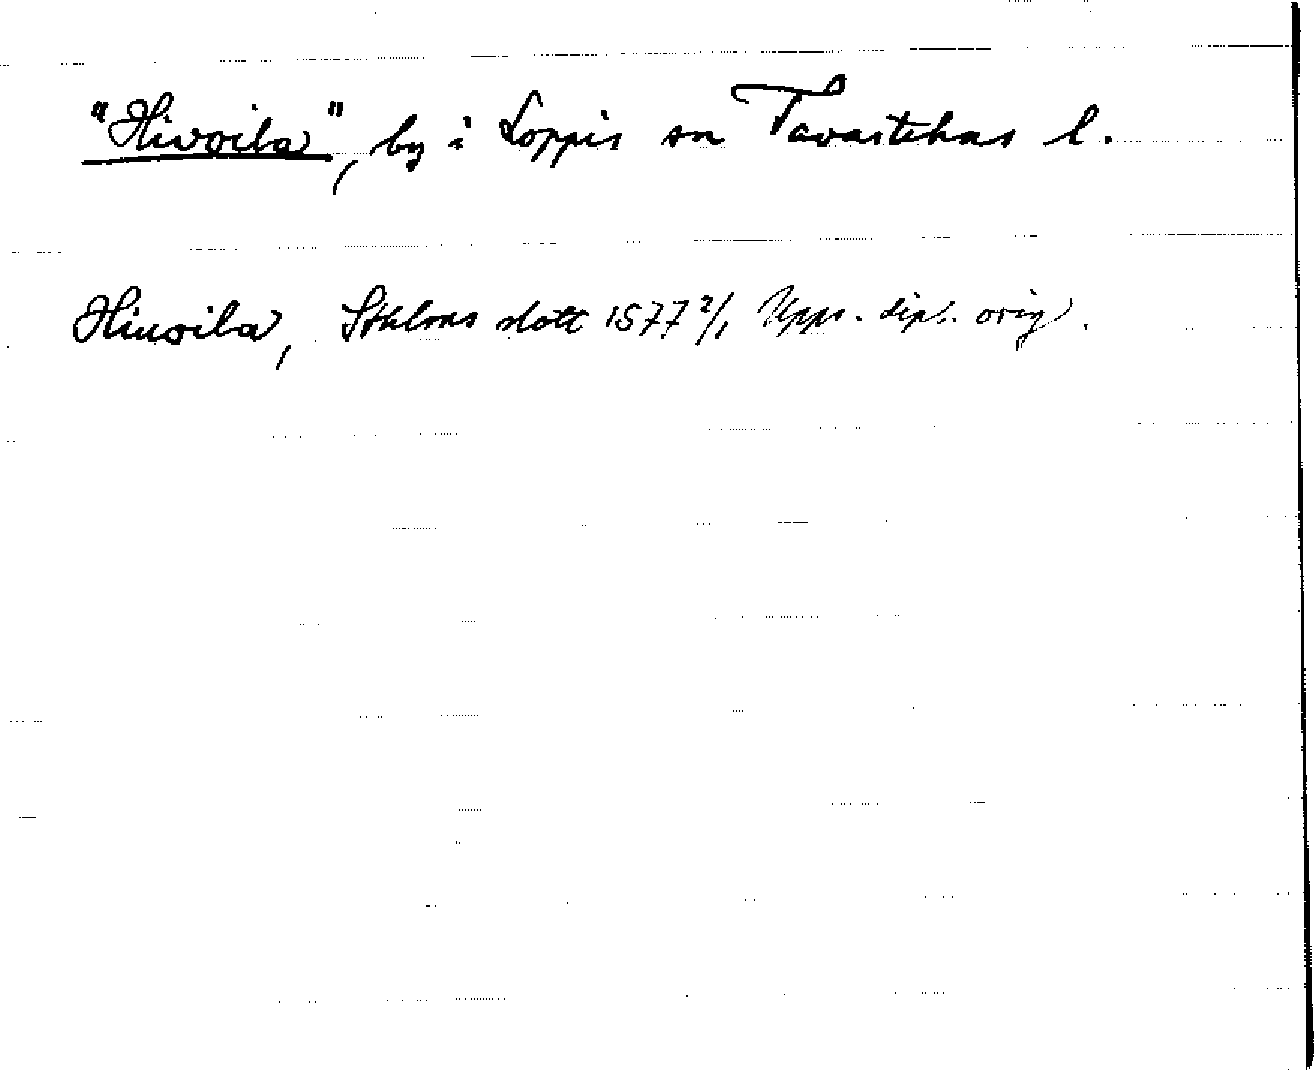 "Hivoila", by i Loppis sn Tavastehus l.
Hiuoila, Sthlms slott 1577 2/1 Upps. dipl. orig.